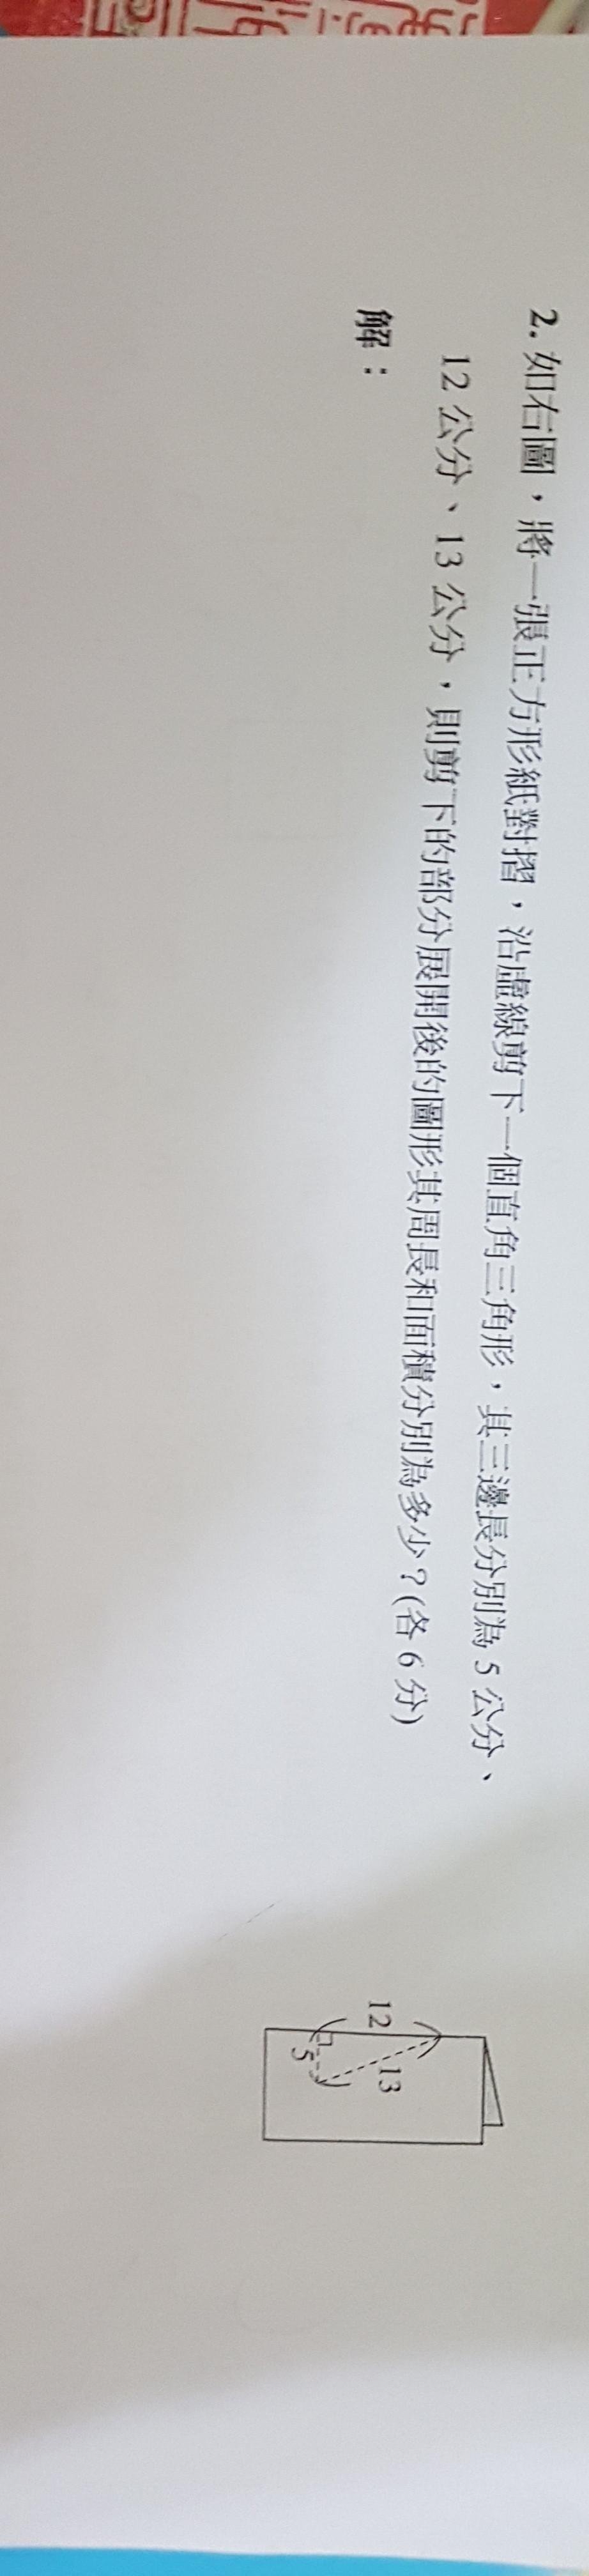 2. 如右圖，將一張正方形紙對摺，沿虛線剪下一個直角三角形，其三邊長分別為 5 公分、
12 公分、13 公分，則剪下的部分展開後的圖形其周長和面積分別為多少？(各 6 分)
解：
12
13
5